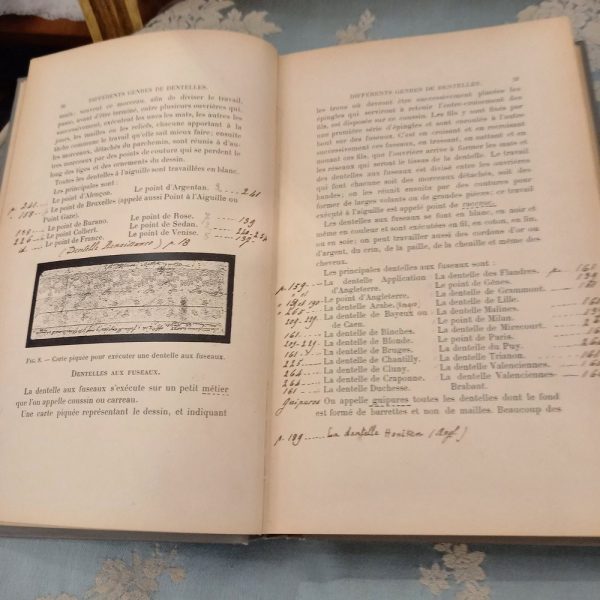 DIFFÉRENTS GENRES DE DENTELLES.
souvent ce morceau, afin de diviser le travail,
avant d'être terminé, entre plusieurs ouvrières qui,
successivement, exécutent les unes les mats, les autres les
jours, les mailles ou les reliefs, chacune apportant à la
tâche commune le travail qu'elle sait mieux faire; ensuite
les morceaux, détachés du parchemin, sont réunis à d'au-
tres morceaux par des points de couture qui se perdent le
long des tiges et des ornements du dessin.
Toutes les dentelles à l'aiguille sont travaillées en blanc.
Les principales sont :
241 Le point d'Alençon. Le point d'Argentan. 241
188 Le point de Bruxelles (appelé aussi Point d'Aiguille ou
Point Gaze). Le point de Rose. 139
Le point de Burano. Le point de Sedan.
226 Le point Colbert. Le point de Venise.
Le point de France.
(Dentelle Renaissance) p. 13
FIG. 8. — Carte piquée pour exécuter une dentelle aux fuseaux.
DENTELLES AUX FUSEAUX.
La dentelle aux fuseaux s'exécute sur un petit métier
que l'on appelle coussin ou carreau.
Une carte piquée représentant le dessin, et indiquant
DIFFÉRENTS GENRES DE DENTELLES.
les trous où devront être successivement placées les
épingles qui serviront à retenir l'entre-croisement des
fils, est disposée sur ce coussin. Les fils y sont fixés par
une première série d'épingles et sont enroulés à l'autre
bout sur des fuseaux. C'est en croisant et en recroisant
successivement ces fuseaux, en tressant, en nattant et en
nouant ces fils, que l'ouvrière arrive à former les mats et
les réseaux qui seront le tissus de la dentelle. Le travail
des dentelles aux fuseaux est divisé entre les ouvrières
qui font chacune soit des morceaux détachés, soit des
bandes; on les réunit ensuite par des coutures pour
former de larges volants ou de grandes pièces. Ce travail
exécuté à l'aiguille est appelé point de raccroc.
Les dentelles aux fuseaux se font en blanc, en noir et
même en couleur et sont exécutées en fil, en coton, en lin,
ou en soie; on peut travailler aussi des cordons d'or ou
d'argent, du crin, de la paille, de la chenille et même des
cheveux.
Les principales dentelles aux fuseaux sont :
p. 159 La dentelle Application d'Angleterre. La dentelle des Flandres. p. 161
Le point d'Angleterre. Le point de Gênes.
La dentelle Arabe. La dentelle de Grammont.
265 La dentelle de Bayeux ou de Caen. La dentelle de Lille.
La dentelle Malines.
La dentelle de Binches. Le point de Milan.
209-229 La dentelle de Blonde. La dentelle de Mirecourt.
161 La dentelle de Bruges. Le point de Paris.
225 La dentelle de Chantilly. La dentelle du Puy. 264
264 La dentelle de Cluny. La dentelle Trianon. 161
264 La dentelle de Craponne. La dentelle Valenciennes.
161 La dentelle Duchesse. La dentelle Valenciennes-Brabant.
guipures On appelle guipures toutes les dentelles dont le fond
est formé de barrettes et non de mailles. Beaucoup des
p. 189 La dentelle Honiton (Angl.)